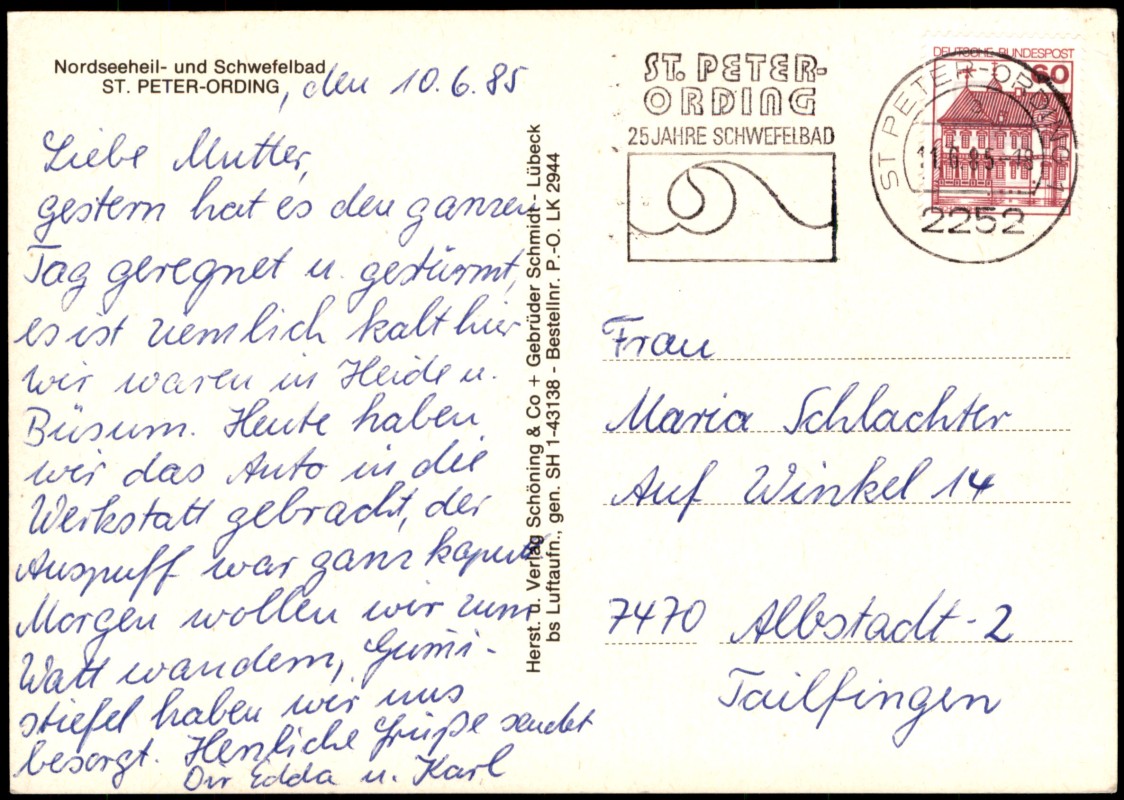 Nordseeheil- und Schwefelbad
ST. PETER-ORDING, den 10.6.85
Liebe Mutter,
gestern hat es den ganzen
Tag geregnet u. gestürmt,
es ist ziemlich kalt hier
wir waren in Heide u.
Büsum. Heute haben
wir das Auto in die
Werkstatt gebracht, der
Auspuff war ganz kaputt
Morgen wollen wir zum
Watt wandern, Gumi-
stiefel haben wir uns
besorgt. Herzliche Grüße sendet
Dir Edda u. Karl
Herst. u. Verlag Schöning & Co + Gebrüder Schmidt - Lübeck
bs Luftaufn., gen. SH 1-43138 - Bestellnr. P.-O. LK 2944
ST. PETER-
ORDING
25 JAHRE SCHWEFELBAD
DEUTSCHE BUNDESPOST
60
ST PETER-ORDING 1
11.6.85-18
2252
Frau
Maria Schlachter
Auf Winkel 14
7470 Albstadt-2
Tailfingen